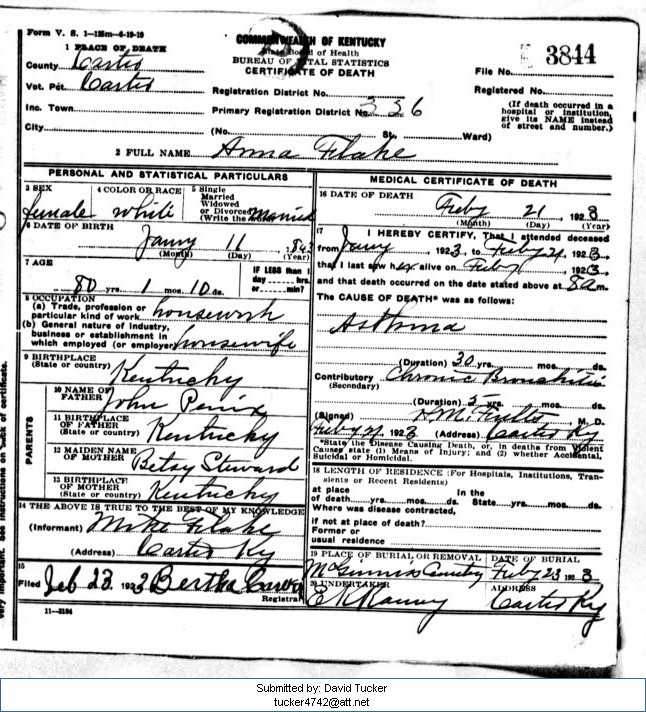 Form V. S. 1-125m-6-19-19
COMMONWEALTH OF KENTUCKY
State Board of Health
BUREAU OF VITAL STATISTICS
CERTIFICATE OF DEATH
3844
File No.
Registered No.
(If death occurred in a hospital or institution, give its NAME instead of street and number.)
1 PLACE OF DEATH
County Carter
Vot. Pct. Carter
Inc. Town
City
Registration District No.
Primary Registration District No. 336
(No. St. Ward)
2 FULL NAME Anna Flake
PERSONAL AND STATISTICAL PARTICULARS
3 SEX female
4 COLOR OR RACE white
5 Single Married Widowed or Divorced (Write the word) Married
6 DATE OF BIRTH Jany 11 1843
(Month) (Day) (Year)
7 AGE 80 yrs. 1 mos. 10 ds.
IF LESS than 1 day hrs. or min?
8 OCCUPATION
(a) Trade, profession or particular kind of work housework
(b) General nature of industry, business or establishment in which employed (or employer) housewife
9 BIRTHPLACE (State or country) Kentucky
PARENTS
10 NAME OF FATHER John Penix
11 BIRTHPLACE OF FATHER (State or country) Kentucky
12 MAIDEN NAME OF MOTHER Betsy Steward
13 BIRTHPLACE OF MOTHER (State or country) Kentucky
14 THE ABOVE IS TRUE TO THE BEST OF MY KNOWLEDGE
(Informant) Mike Flake
(Address) Carter Ky
15
Filed Feb 23 192 Bertha
Registrar
11-3194
MEDICAL CERTIFICATE OF DEATH
16 DATE OF DEATH Feby 21 1923
(Month) (Day) (Year)
17 I HEREBY CERTIFY, That I attended deceased
from Jany 1923, to Feby 21, 1923,
that I last saw her alive on Feby 1923,
and that death occurred on the date stated above at 8 a m.
The CAUSE OF DEATH* was as follows:
Asthma
(Duration) 30 yrs. mos. ds.
Contributory (Secondary) Chronic Bronchitis
(Duration) 5 yrs. mos. ds.
(Signed) M. D.
Feby 21, 1923 (Address) Carter Ky
*State the Disease Causing Death, or, in deaths from Violent Causes state (1) Means of Injury; and (2) whether Accidental, Suicidal or Homicidal.
18 LENGTH OF RESIDENCE (For Hospitals, Institutions, Transients or Recent Residents)
at place of death yrs. mos. ds. In the State yrs. mos. ds.
Where was disease contracted,
if not at place of death?
Former or usual residence
19 PLACE OF BURIAL OR REMOVAL McGinnis Cemetry
DATE OF BURIAL Feby 23 1923
20 UNDERTAKER
ADDRESS Carter Ky
very important. See instructions on back of certificate.
Submitted by: David Tucker
tucker4742@att.net